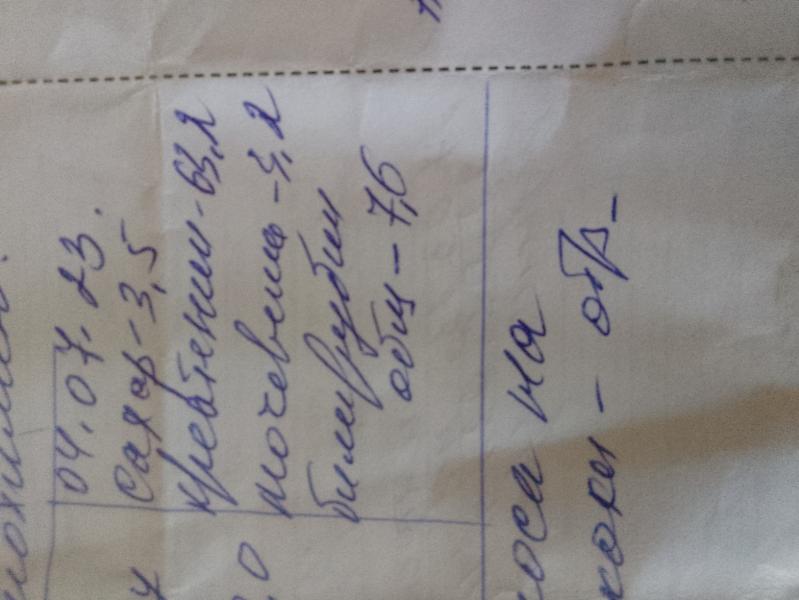 04.07.23.
сахар-3,5
креатенин-63,2
мочевина-5,2
билирубин
общ-7,6
на
- отр-